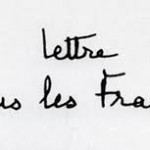 Lettre
us les Fra